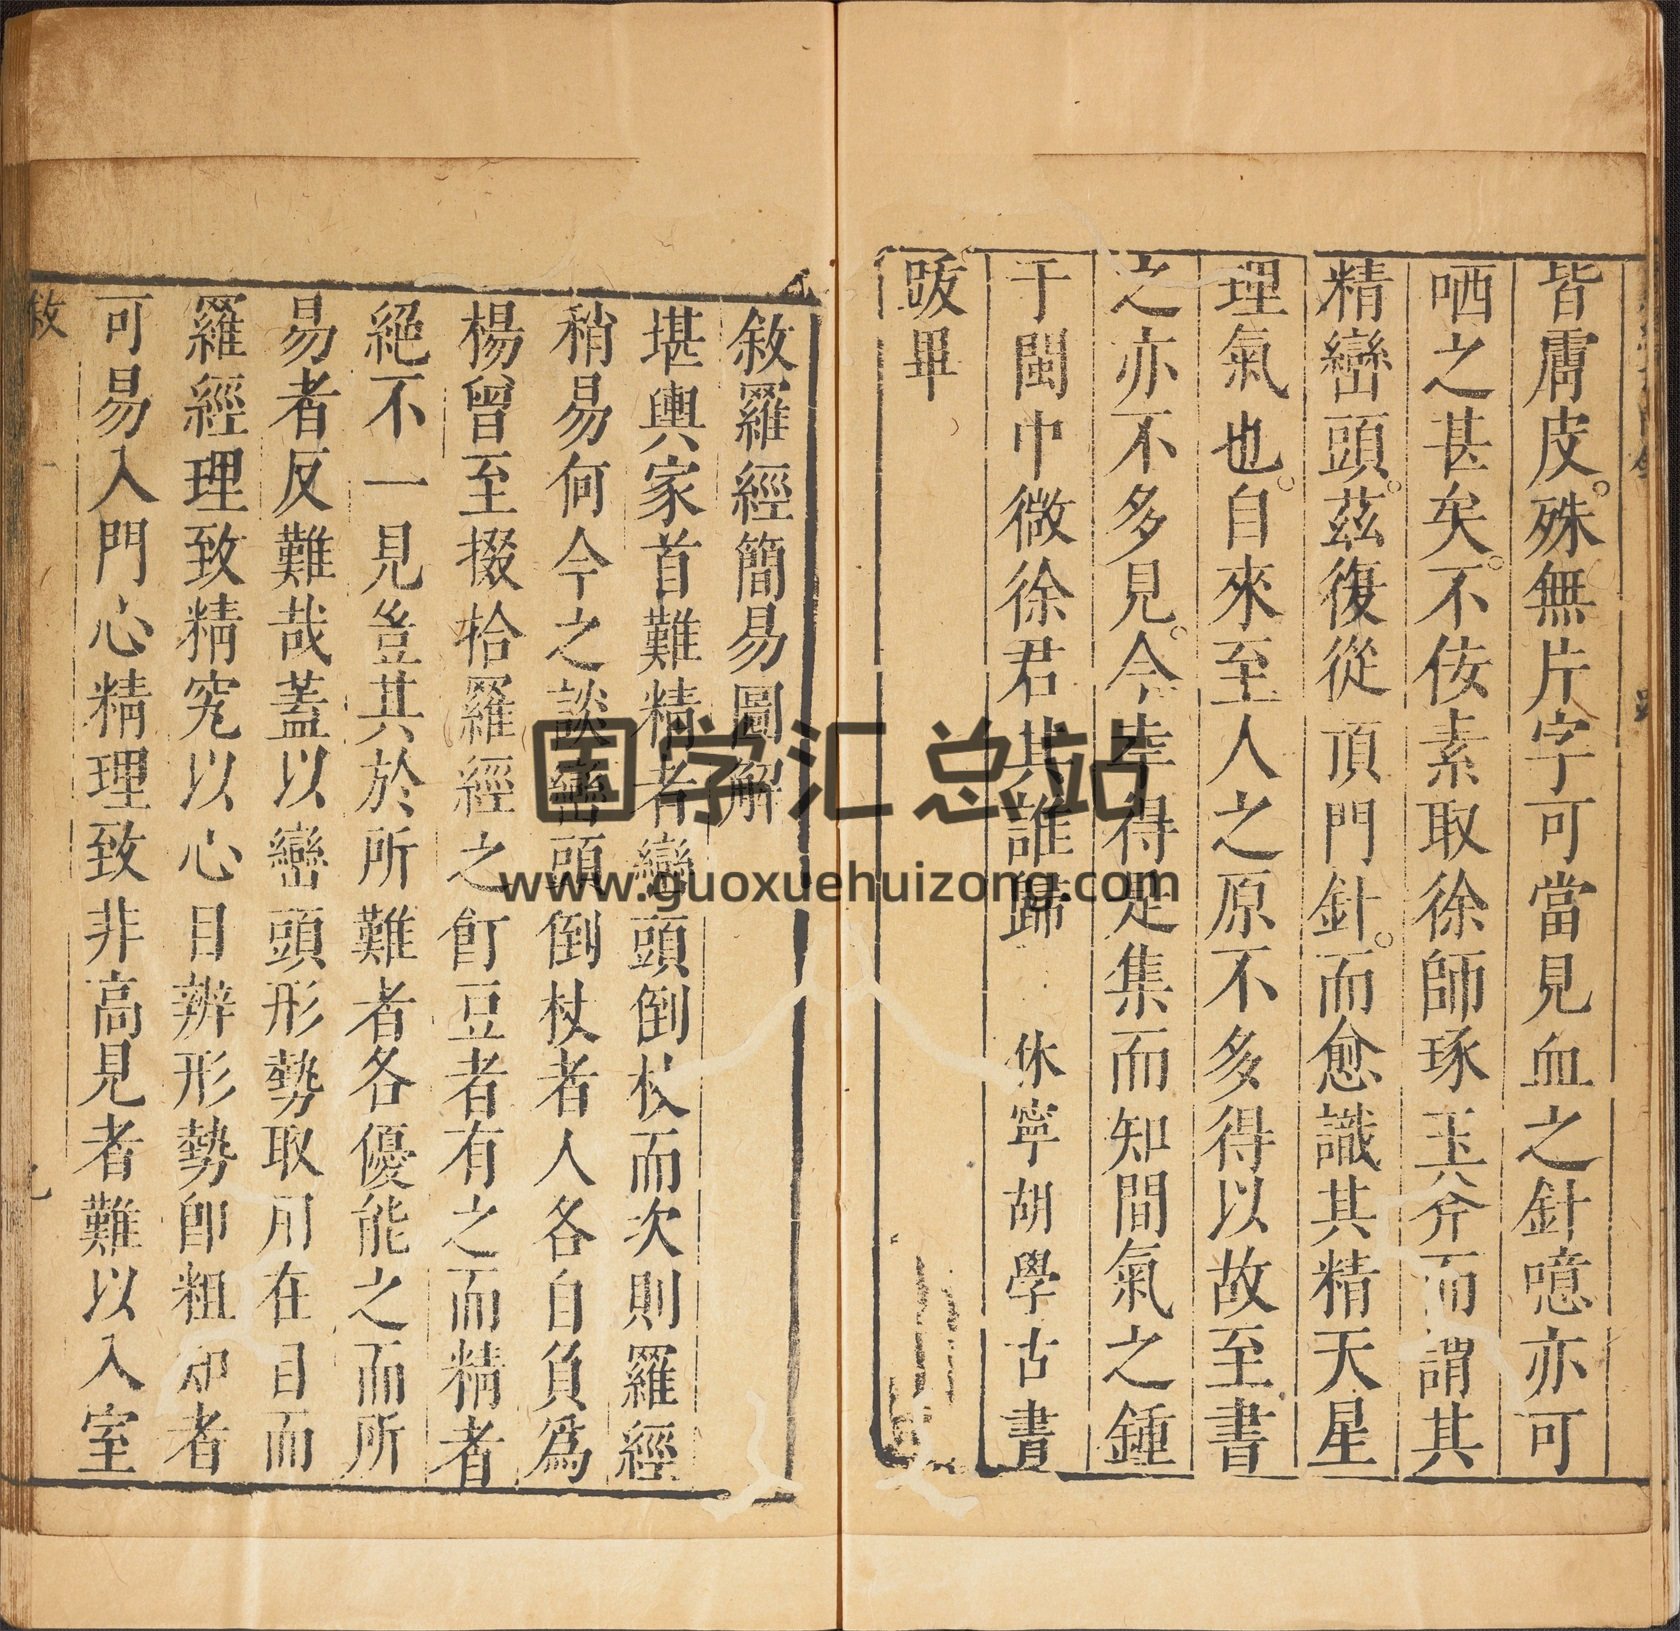 皆膚皮。殊無片字可當見血之針噫亦可
哂之甚矣。不佞素取徐師琢玉斧而謂其
精巒頭。茲復從頂門針。而愈識其精天星
理氣也。自來至人之原不多得以故至書
之亦不多見。今幸得是集而知間氣之鍾
于閩中微徐君其誰歸 休寧胡學古書
跋畢
敘羅經簡易圖解
堪輿家首難精者巒頭倒杖而次則羅經
稍易何今之談巒頭倒杖者人各自負為
楊曾至掇拾羅經之飣豆者有之而精者
絕不一見豈其於所難者各優能之而所
易者反難哉蓋以巒頭形勢取用在目而
羅經理致精究以心目辨形勢卽粗知者
可易入門心精理致非高見者難以入室
敘
国学汇总站
www.guoxuehuizong.com